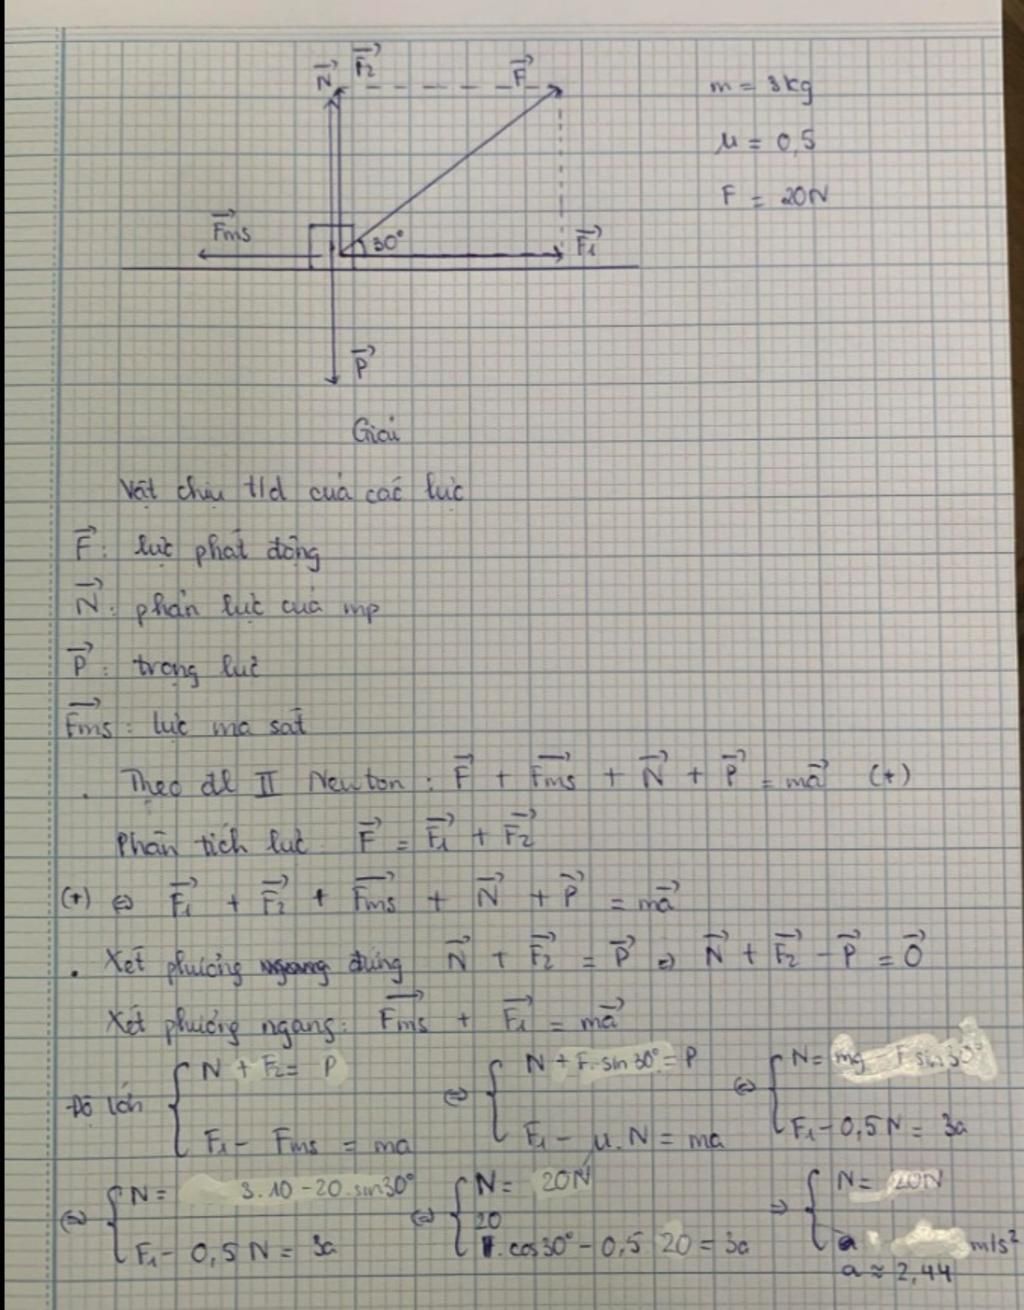 N⃗ F⃗₂ F⃗
m = 3kg
μ = 0,5
F = 20N
F⃗ms 30° F⃗₁
P⃗
Giải
Vật chịu t/d của các lực
F⃗ : lực phát động
N⃗ : phản lực của mp
P⃗ : trọng lực
F⃗ms : lực ma sát
. Theo đl II Newton : F⃗ + F⃗ms + N⃗ + P⃗ = ma⃗ (+)
Phân tích lực F⃗ = F⃗₁ + F⃗₂
(+) ⇔ F⃗₁ + F⃗₂ + F⃗ms + N⃗ + P⃗ = ma⃗
. Xét phương ngang đứng N⃗ + F⃗₂ = P⃗ => N⃗ + F⃗₂ - P⃗ = 0⃗
Xét phương ngang: F⃗ms + F⃗₁ = ma⃗
Độ lớn { N + F₂ = P ⇔ { N + F. sin 30° = P ⇔ { N = mg - F sin 30°
F₁ - Fms = ma F₁ - μ.N = ma F₁ - 0,5N = 3a
⇔ { N = 3.10 - 20.sin30° ⇔ { N = 20N => { N = 20N
20
F₁ - 0,5N = 3a .cos30° - 0,5 20 = 3a a m/s²
a ≈ 2,44